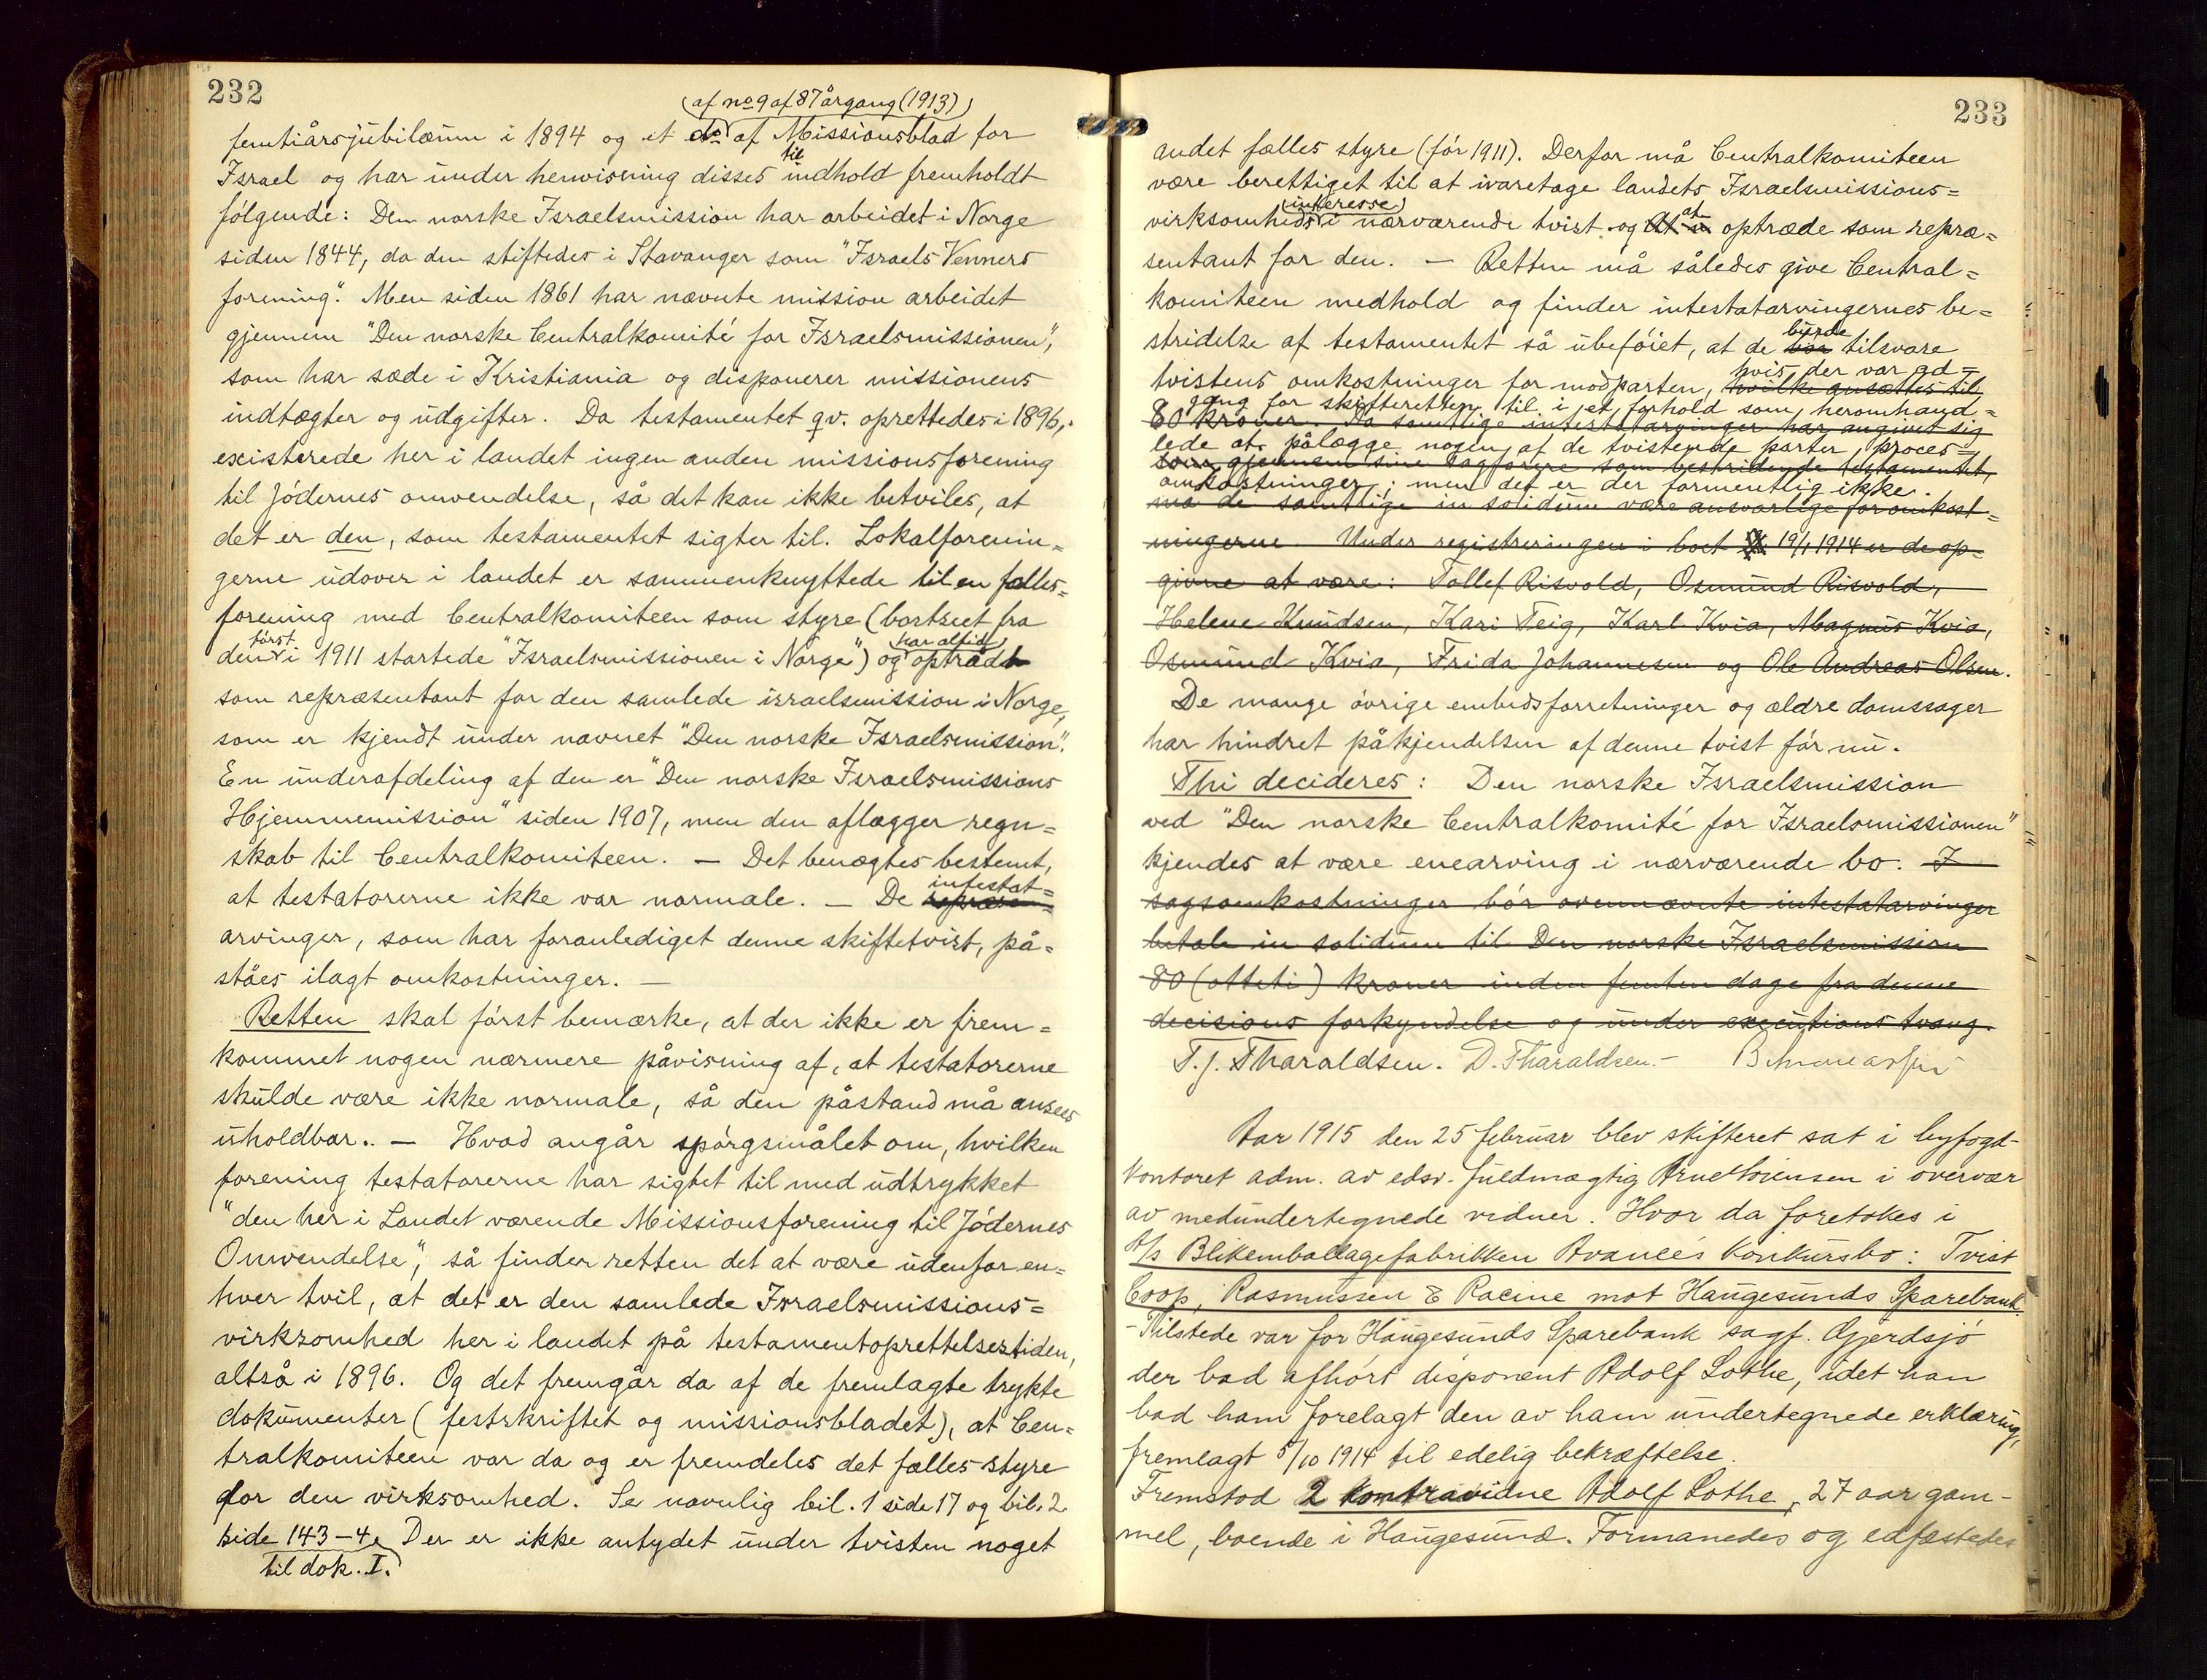 232
(af no 9 af 87 årgang (1913))
femtiårsjubilæum i 1894 og et do af Missionsblad for
til
Israel og har under henvisning disses indhold fremholdt
følgende: Den norske Israelsmission har arbeidet i Norge
siden 1844, da den stiftedes i Stavanger som "Israels Venners
forening". Men siden 1861 har nævnte mission arbeidet
gjennem "Den norske Centralkomité for Israelsmissionen",
som har sæde i Kristiania og disponerer missionens
indtægter og udgifter. Da testamentet qv. oprettedes i 1896,
existerede her i landet ingen anden missionsforening
til Jødernes omvendelse, så det kan ikke betviles, at
det er den, som testamentet sigter til. Lokalforenin=
gerne udover i landet er sammenknyttede til en fælles=
forening med Centralkomiteen som styre (bortseet fra
først har altid
den i 1911 startede "Israelsmissionen i Norge") og optrådt
som repræsentant for den samlede israelsmission i Norge,
som er kjendt under navnet "Den norske Israelsmission".
En underafdeling af den er "Den norske Israelsmissions
Hjemmemission" siden 1907, men den aflægger regn=
skab til Centralkomiteen. — Det benægtes bestemt,
intestat=
at testatorerne ikke var normale. — De repræsen=
arvinger, som har foranlediget denne skiftetvist, på=
ståes ilagt omkostninger. —
Retten skal først bemærke, at der ikke er frem=
kommet nogen nærmere påvisning af, at testatorerne
skulde være ikke normale, så den påstand må ansees
uholdbar. — Hvad angår spørgsmålet om, hvilken
forening testatorerne har sigtet til med udtrykket
"den her i Landet værende Missionsforening til Jødernes
Omvendelse", så finder retten det at være udenfor en=
hver tvil, at det er den samlede Israelsmissions=
virksomhed her i landet på testamentoprettelsestiden,
altså i 1896. Og det fremgår da af de fremlagte trykte
dokumenter (festskriftet og missionsbladet), at Cen=
tralkomiteen var da og er fremdeles det fælles styre
for den virksomhed. Se navnlig bil. 1 side 17 og bil. 2
side 143-4. Der er ikke antydet under tvisten noget
til dok. I.
233
andet fælles styre (før 1911). Derfor må Centralkomiteen
være berettiget til at ivaretage landets Israelsmissions=
(interesse) at
virksomheds i nærværende tvist og optræde som repræ=
sentant for den. — Retten må således give Central=
komiteen medhold og finder intestatarvingernes be=
burde
stridelse af testamentet så ubeføiet, at de bør tilsvare
hvis der var ad=
tvistens omkostninger for modparten, hvilke ansættes til
gang for skifteretten til i et forhold som heromhand=
80 kroner. Da samtlige intestatarvinger har angivet sig
lede at pålægge nogen af de tvistende parter proces=
som gjennem sine sagførere som bestridende testamentet,
omkostninger; men det er der formentlig ikke.
må de samtlige in solidum være ansvarlige for omkost=
ningerne. Under registreringen i boet 19/1 1914 er de op=
givne at være: Tollef Risvold, Osmund Risvold,
Helene Knudsen, Kari Teig, Karl Kvia, Magnus Kvia,
Osmund Kvia, Frida Johannesen og Ole Andreas Olsen.
De mange øvrige embedsforretninger og ældre domssager
har hindret påkjendelsen af denne tvist før nu.
Thi decideres: Den norske Israelsmission
ved "Den norske Centralkomité for Israelsmissionen"
kjendes at være enearving i nærværende bo. I
sagsomkostninger bør ovennævnte intestatarvinger
betale in solidum til Den norske Israelsmission
80 (otteti) kroner inden femten dage fra denne
decisions forkyndelse og under executions tvang.
T. J. Tharaldsen. D. Tharaldsen. -
Aar 1915 den 25 februar blev skifteret sat i byfogd-
kontoret adm. av edsv. fuldmægtig Arne Sørensen i overvær
av medundertegnede vidner. Hvor da foretokes i
A/s Blikemballagefabrikken Avancés konkursbo: Tvist
Coop, Rasmussen & Racine mot Haugesunds Sparebank.
- Tilstede var for Haugesunds Sparebank sagf. Gjerdsjø
der bad afhørt disponent Adolf Lothe, idet han
bad ham forelagt den av ham undertegnede erklæring,
fremlagt 5/10 1914 til edelig bekræftelse.
Fremstod 2 kontravidne Adolf Lothe, 27 aar gam-
mel, boende i Haugesund. Formanedes og edfæstedes